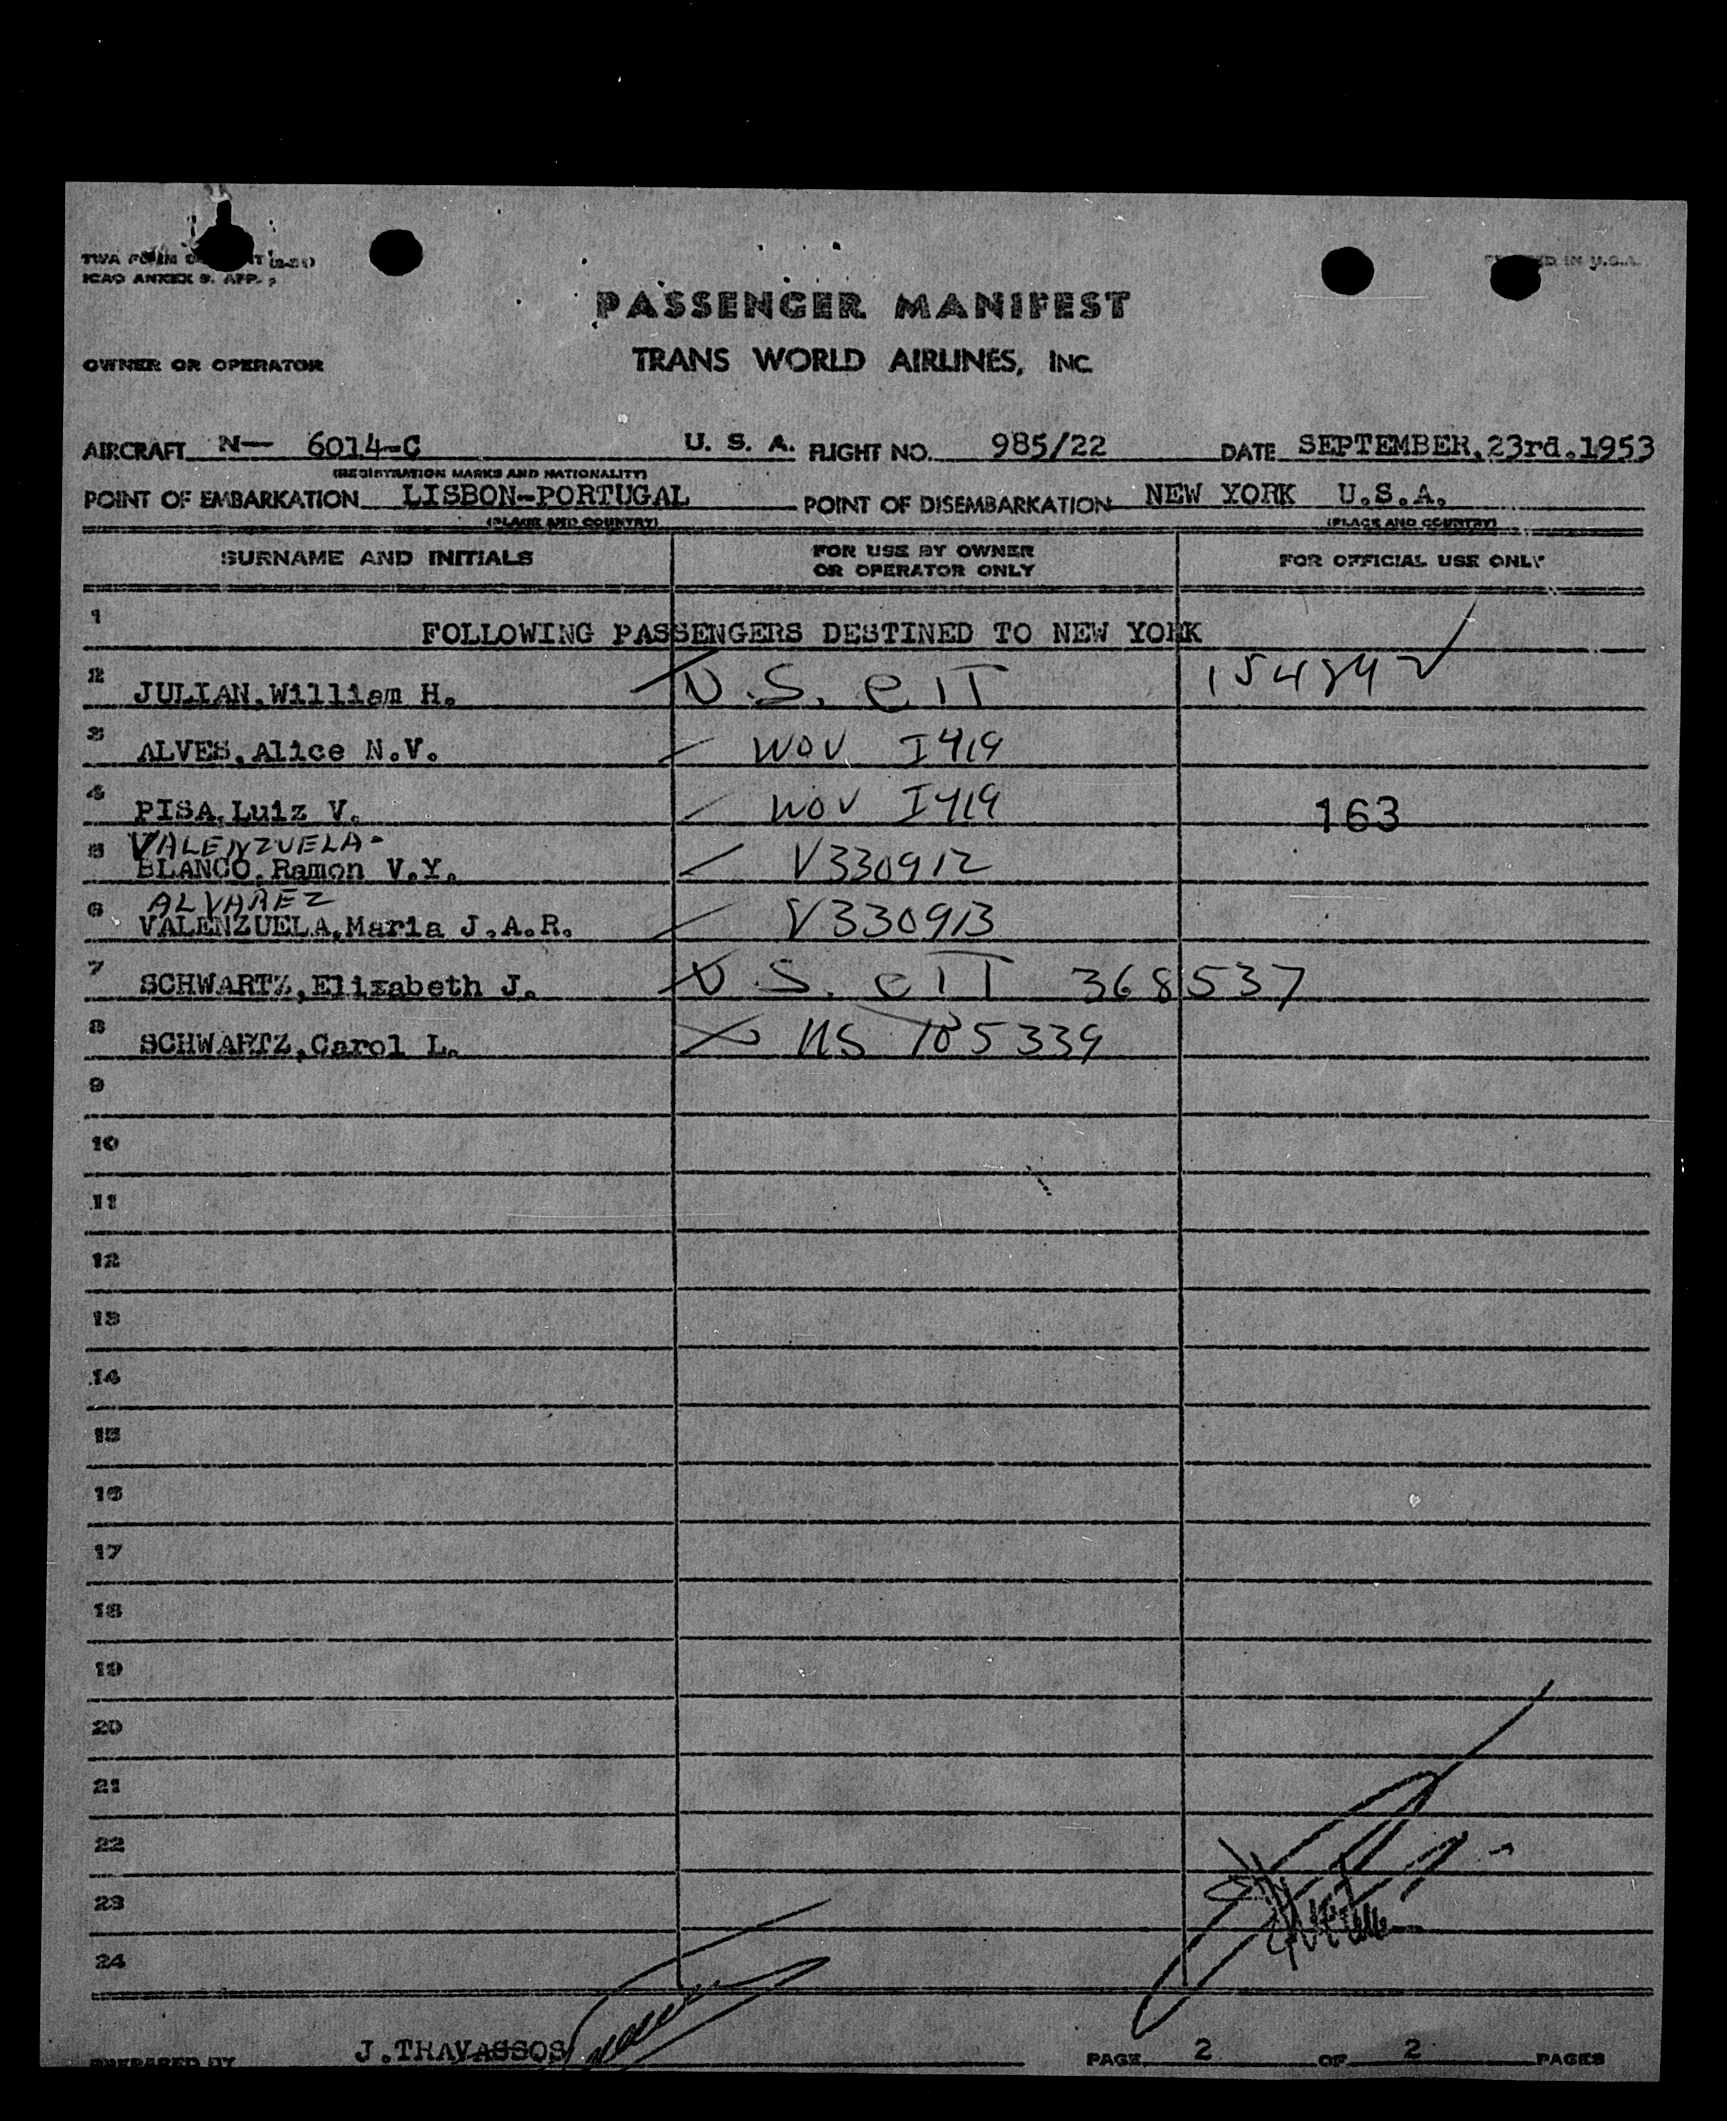 TWA FORM
ICAO ANNEX 9. APP.
IN U.S.A.
PASSENGER MANIFEST
OWNER OR OPERATOR TRANS WORLD AIRLINES, INC.
AIRCRAFT N— 6014-C U. S. A. FLIGHT NO. 985/22 DATE SEPTEMBER,23rd.1953
(REGISTRATION MARKS AND NATIONALITY)
POINT OF EMBARKATION LISBON-PORTUGAL POINT OF DISEMBARKATION NEW YORK U.S.A.
(PLACE AND COUNTRY) (PLACE AND COUNTRY)
SURNAME AND INITIALS FOR USE BY OWNER OR OPERATOR ONLY FOR OFFICIAL USE ONLY
1 FOLLOWING PASSENGERS DESTINED TO NEW YORK
2 JULIAN,William H. U.S. CIT 15484
3 ALVES,Alice N.V. WOV I419
4 PISA,Luiz V. WOV I419 163
VALENZUELA-
5 BLANCO,Ramon V.Y. V330912
ALVAREZ
6 VALENZUELA,Maria J.A.R. V330913
7 SCHWARTZ,Elizabeth J. U.S. CIT 368537
8 SCHWARTZ,Carol L. US 785339
9
10
11
12
13
14
15
16
17
18
19
20
21
22
23
24
PREPARED BY J.THAVASSOS PAGE 2 OF 2 PAGES